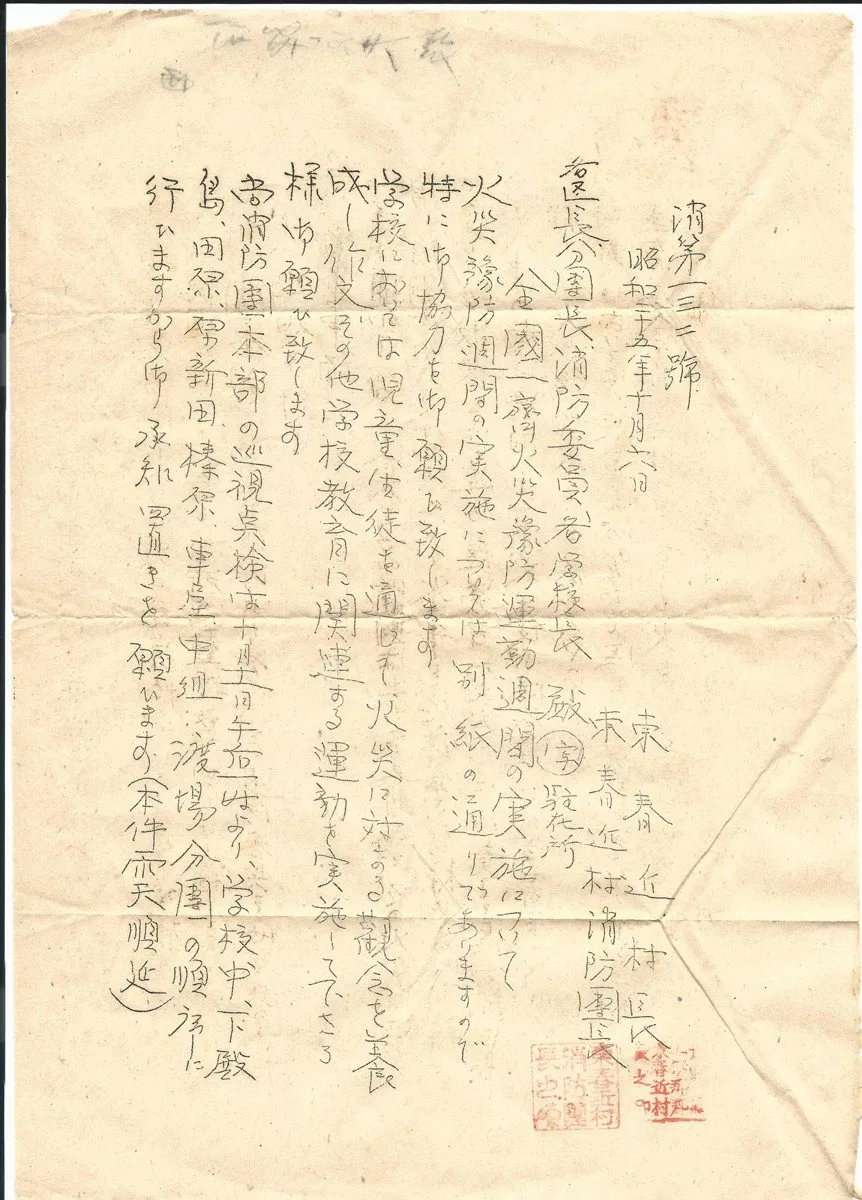 消第一三二號
昭和二十五年十月六日
東春近村長
東春近村消防團長
各区長、分團長、消防委員、各学校長 殿 駐在所
全國一齊火災豫防運動週間の実施について
火災豫防週間の実施については別紙の通りでありますので
特に御協力を御願ひ致します
学校においては児童、生徒を通じ火災に対する観念を養
成し作文その他学校教育に関連する運動を実施して下さる
様御願ひ致します
尚消防團本部の巡視点検は十月十一日午后一時より、学校、中、下殿
島、田原、原新田、榛原、車屋、中組、渡場分團の順序に
行ひますから御承知置きを願ひます(本件雨天順延)
東春近村
消防團
長之印